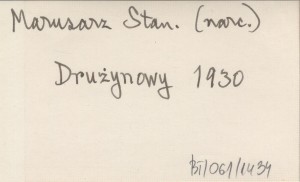 Marusarz Stan. (narc.)
Drużynowy 1930
BI/061/1434